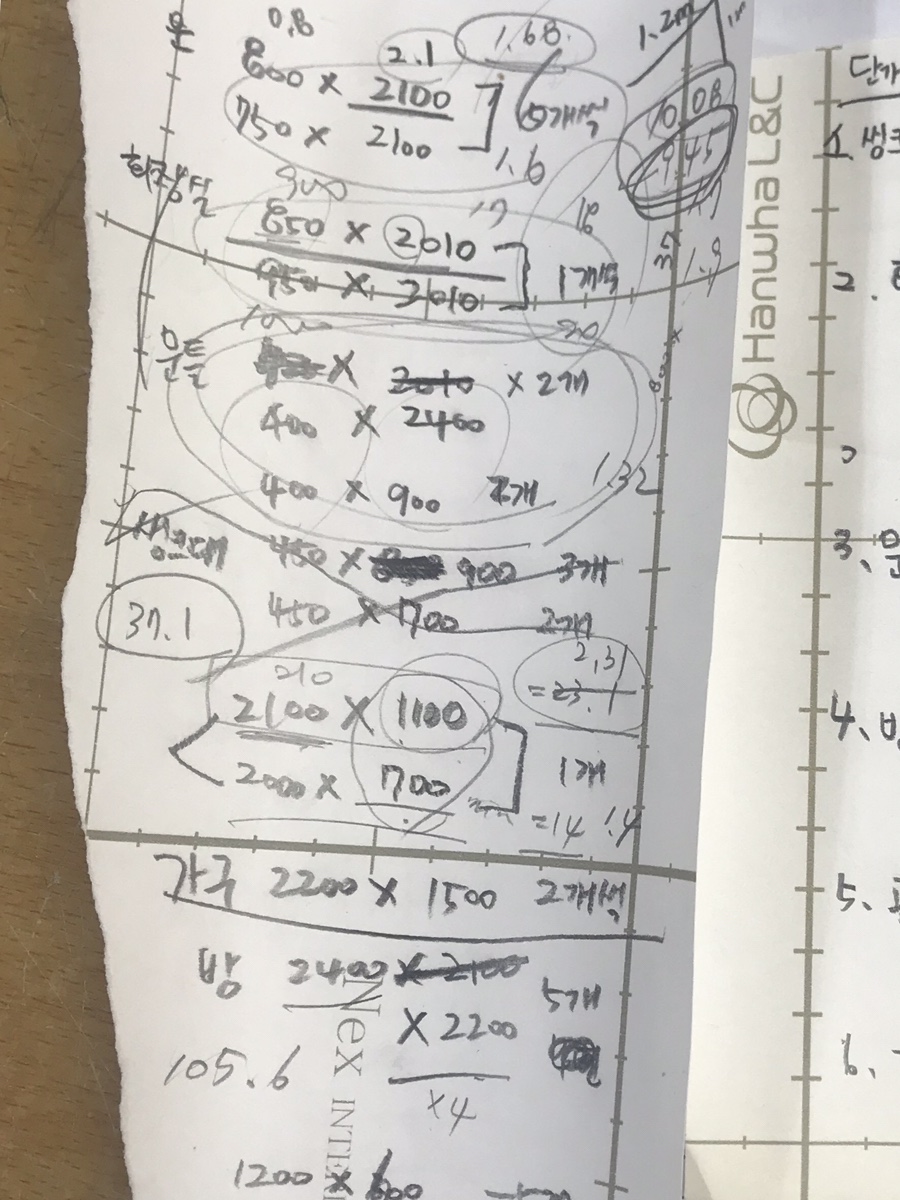 문
0.8
2.1
1.68
1.2m
800 × 2100
5개씩
750 × 2100
1.6
10.08
945
화장실
900
17
18
850 × 2010
950 × 2010
1개씩
37
1.9
1000
20
문틀
× 2010 × 2개
400 × 2400
400 × 900 2개
1.32
450 × 900 3개
450 × 1700 2개
37.1
2.31
= 23.1
210
2100 × 1100
2000 × 700
1개
=14 1.4
가구 2200 × 1500 2개씩
방 2400 × 2100
5개
× 2200
105.6
×4
1200 × 600
NeX INTE
Hanwha L&C
단가
1. 씽크
2.
3. 문
4.
5.
6.